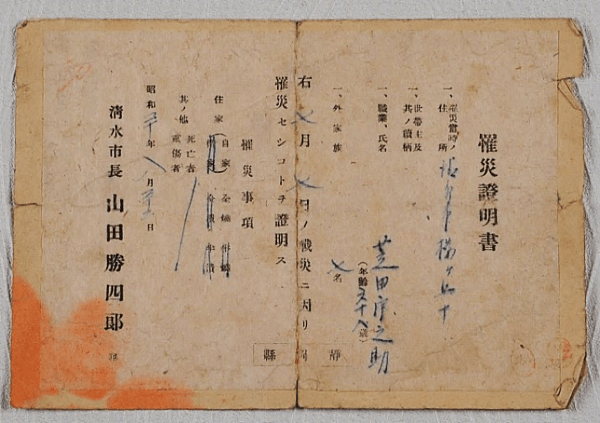 罹災證明書
一、罹災當時ノ
住所
一、世帶主及
其ノ續柄
一、職業、氏名
芝田 之助
(年齡五十八歳)
一、外家族 七名
右七月七日ノ戰災ニ因リ
罹災セシコトヲ證明ス
罹災事項
住家 自家 全燒 半燒
其ノ他 死亡者
重傷者
昭和二十年八月 日
清水市長 山田勝四郎
靜 縣